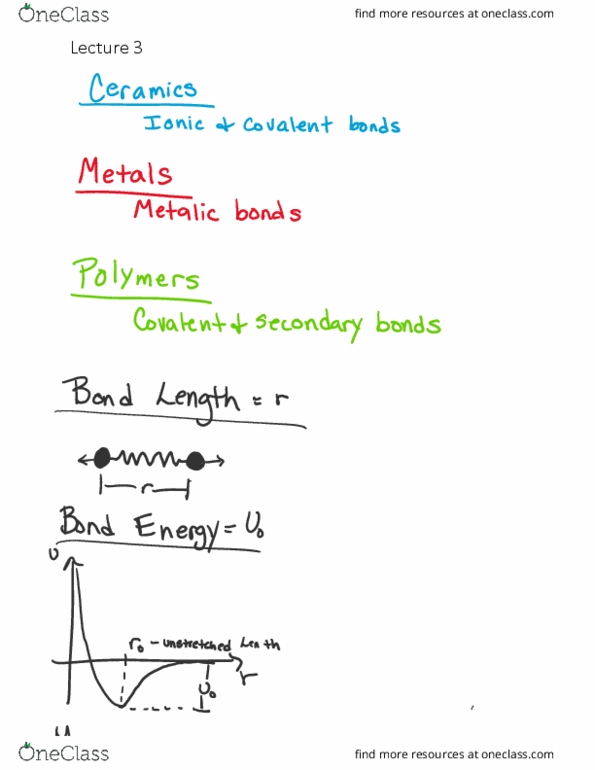 OneClass
find more resources at oneclass.com
Lecture 3
Ceramics
Ionic & Covalent bonds
Metals
Metalic bonds
Polymers
Covalent & secondary bonds
Bond Length = r
r
Bond Energy = U₀
U
r₀ - unstretched Len th
r
U₀
OneClass
find more resources at oneclass.com